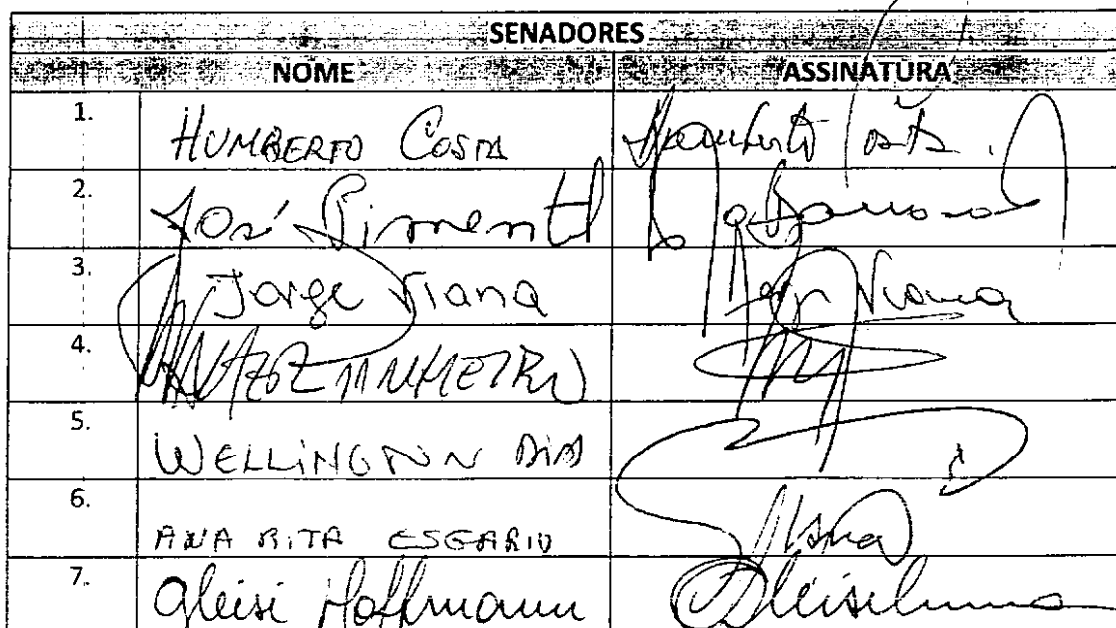 SENADORES
NOME ASSINATURA
1. HUMBERTO COSTA Humberto Costa.
2. José Pimentel
3. Jorge Viana Jorge Viana
4.
5. WELLINGTON DIAS
6. ANA RITA ESGARIO
7. Gleisi Hoffmann